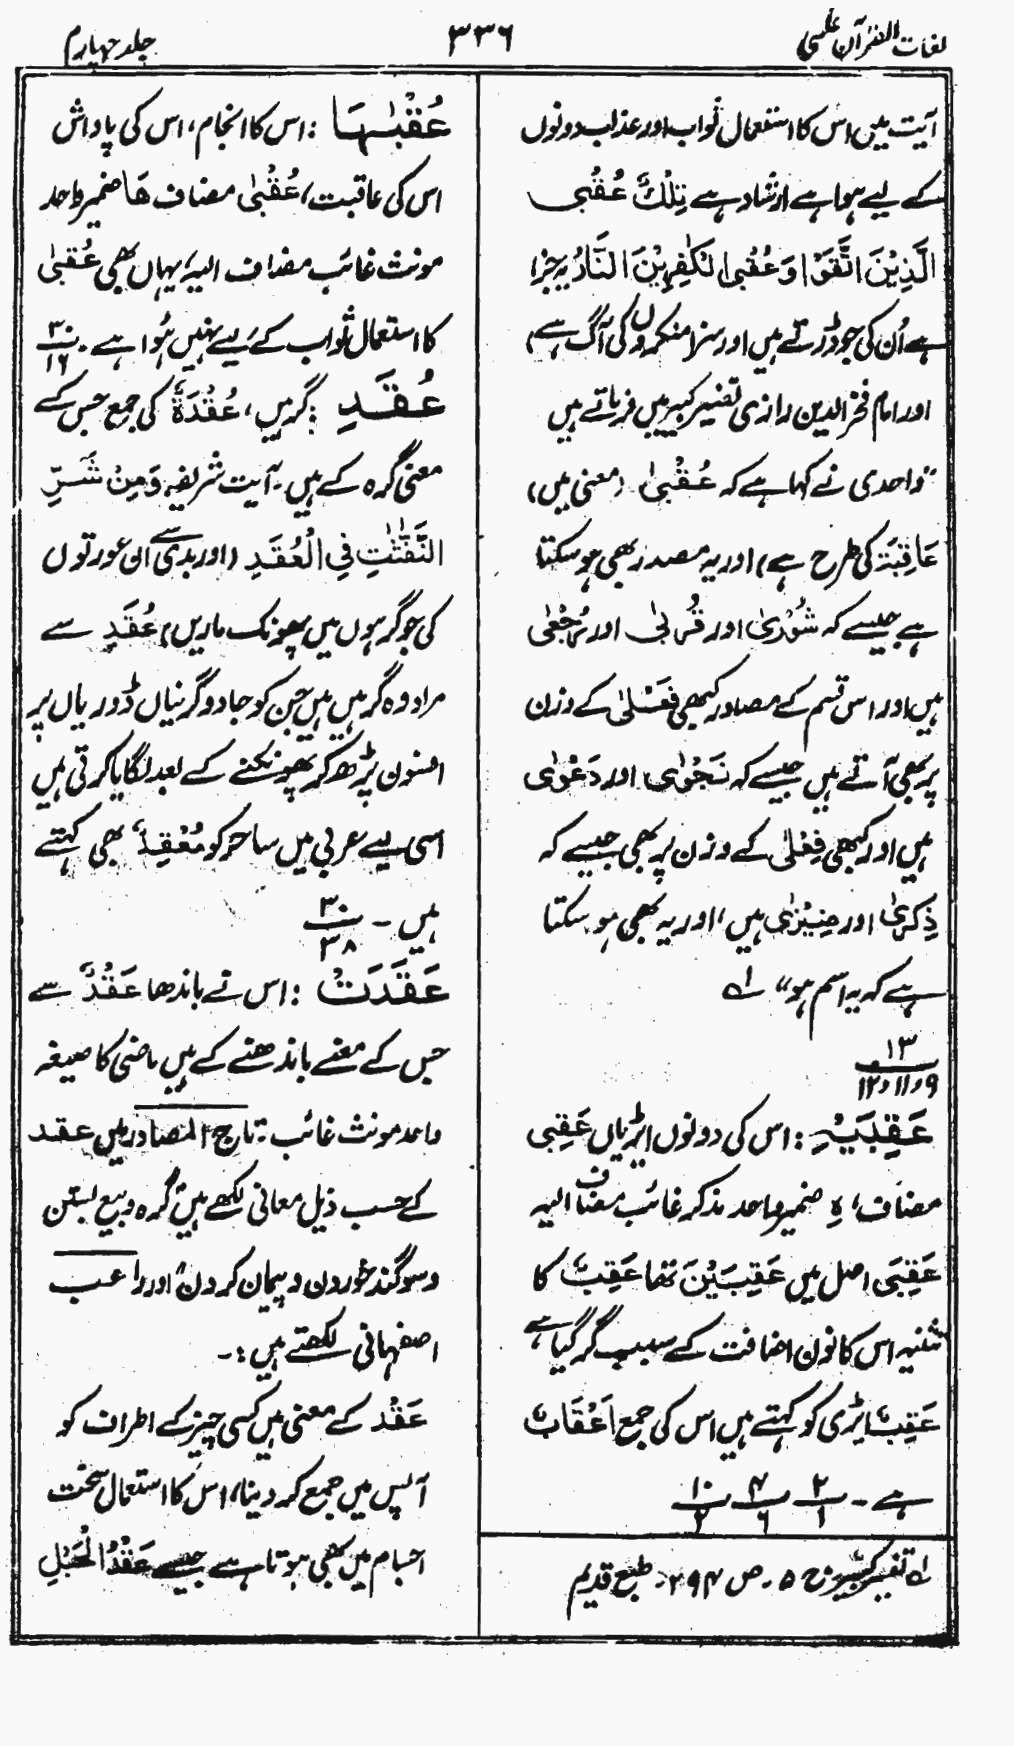 لغات القرآن علسی
۳۳۶
جلد چہارم
آیت میں اس کا استعمال ثواب اور عذاب دونوں
کے لیے ہوا ہے ارشاد ہے تِلْكَ عُقْبَى
الَّذِيْنَ اتَّقَوْا وَعُقْبَى الْكٰفِرِيْنَ النَّارُ یہ جزا
ہے اُن کی جو ڈرتے ہیں اور سزا منکروں کی آگ ہے)
اور امام فخر الدین رازی تفسیر کبیر میں فرماتے ہیں
"واحدی نے کہا ہے کہ عُقْبیٰ (معنی میں)
عَاقِبَة کی طرح ہے) اور یہ مصدر بھی ہو سکتا
ہے جیسے کہ شُوْریٰ اور قُربیٰ اور رُجْعٰی
ہیں اور اس قسم کے مصادر کبھی فَعْلیٰ کے وزن
پر بھی آتے ہیں جیسے کہ نَجْوٰی اور دَعْوٰی
ہیں اور کبھی فِعْلیٰ کے وزن پر بھی جیسے کہ
ذِکریٰ اور ضِیْزٰی ہیں، اور یہ بھی ہو سکتا
ہے کہ یہ اسم ہو" لے
۱۳
۹ و ۱۱ و ۱۲
عَقِبَيْهِ : اس کی دونوں ایڑیاں عَقِبَی
مضاف، ہِ ضمیر واحد مذکر غائب مضاف الیہ
عَقِبَی اصل میں عَقِبَيْنَ تھا عَقِبٌ کا
تثنیہ اس کا نون اضافت کے سبب گر گیا ہے
عَقِبٌ ایڑی کو کہتے ہیں اس کی جمع اَعْقَابٌ
ہے - ۲/۱ - ۴/۶ - ۱۰/۲
لے تفسیر کبیر ج ۵ - ص ۲۹۴ - طبع قدیم
عُقْبٰىهَا : اس کا انجام، اس کی پاداش
اس کی عاقبت، عُقْبیٰ مضاف ھَا ضمیر واحد
مونث غائب مضاف الیہ، یہاں بھی عُقبیٰ
کا استعمال ثواب کے لیے نہیں ہُوا ہے - ۳۰/۱۶
عُقَدِ : گرہیں، عُقْدَةٌ کی جمع جس کے
معنی گرہ کے ہیں - آیت شریفہ وَمِنْ شَرِّ
النَّفّٰثٰتِ فِي الْعُقَدِ (اور بدی سے ان عورتوں
کی جو گرہوں میں پھونک ماریں) عُقَدِ سے
مراد وہ گرہیں ہیں جن کو جادوگرنیاں ڈوریاں پر
افسون پڑھ کر پھونکنے کے بعد لگایا کرتی ہیں
اسی لیے عربی میں ساحر کو مُعْقِدٌ بھی کہتے
ہیں - ۳۰/۳۸
عَقَدَتْ : اس نے باندھا عَقْدٌ سے
جس کے معنے باندھنے کے ہیں ماضی کا صیغہ
واحد مونث غائب : تاج المصادر میں عقد
کے حسب ذیل معانی لکھے ہیں "گرہ و بیع بستن
و سوگند خوردن و پیمان کردن" اور راغب
اصفہانی لکھتے ہیں :-
عَقْد کے معنی ہیں کسی چیز کے اطراف کو
آپس میں جمع کر دینا، اس کا استعمال سخت
اجسام میں بھی ہوتا ہے جیسے عَقْدُ الْحَبْلِ